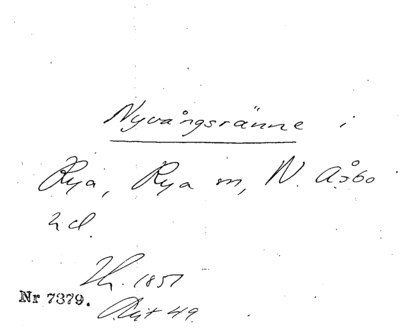 Nyvångsränne i
Rya, Rya sn, N. Åsbo
hd.
Th. 1851
Nr 7379.
Akt 49